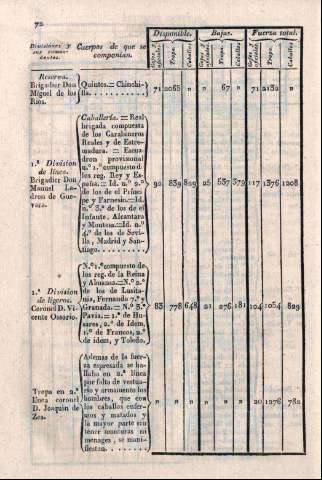 72
Disponible. Bajas. Fuerza total.
Divisiones y sus comandantes.
Cuerpos de que se componian.
Gefes y oficiales. Tropa. Caballos
Gefes y oficiales. Tropa. Caballos
Gefes y oficiales. Tropa. Caballos
Reserva.
Brigadier Don
Miguel de los
Rios.
Quintos. = Chinchi-
lla.
71 2065 » » 67 » 71 2132 »
1.ª Division
de línea.
Brigadier Don
Manuel La-
dron de Gue-
vara.
Caballería. = Real
brigada compuesta
de los Carabineros
Reales y de Estre-
madura. = Escua-
dron provisional
n.º 1.º compuesto de
los reg. Rey y Es-
paña. = Id. n.º 2.º
de los de Prínci-
pe y Farnesio. = Id.
n.º 3.º de los de el
Infante, Alcantara
y Montesa. = Id. n.º
4.º de los de Sevi-
lla, Madrid y San-
tiago.
92 839 829 25 537 379 117 1376 1208
1.ª Division
de ligeros.
Coronel D. Vi-
cente Ossorio.
N.º 1.º compuesto de
los reg. de la Reina
y Almansa. = N.º 2.º
de los de Lusita-
nia, Fernando 7.º y
Granada. = N.º 3.º
Pavía. = 1.º de Hu-
sares, 2.º de Idem,
1.º de Francos, 2.º
de idem, y Toledo.
83 778 648 21 276 181 104 1054 829
Tropa en 2.ª
línea coronel
D. Joaquin de
Zea.
Ademas de la fuer-
za espresada se ha-
llaba en 2.ª línea
por falta de vestua-
rio y armamento los
hombres, que con
los caballos enfer-
mos y matados y
la mayor parte sin
tener monturas ni
menages, se mani-
fiestan.
» » » » » » 20 1276 782